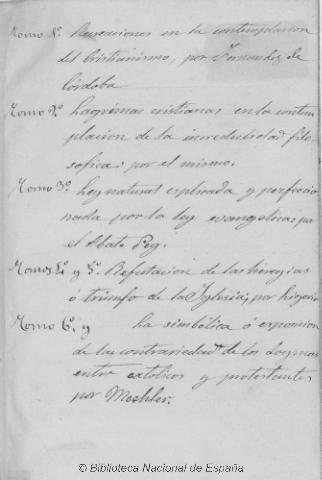 Tomo 1º. Recreaciones en la contemplacion
del Cristianismo, por Fernandez de
Córdoba
Tomo 2º. Lagrimas cristianas en la contem
placion de la incredulidad filo-
sofica: por el mismo.
Tomo 3º. Ley natural esplicada y perfeccio
nada por la ley evangelica, por
el Abate Pey.
Tomos 4º. y 5º. Refutacion de las heregias
ó triunfo de la Iglesia, por Ligorio
Tomo 6º. y La simbólica ó exposicion
de las contrariedades de los dogmas
entre catolicos y protestantes,
por Moehler.
© Biblioteca Nacional de España